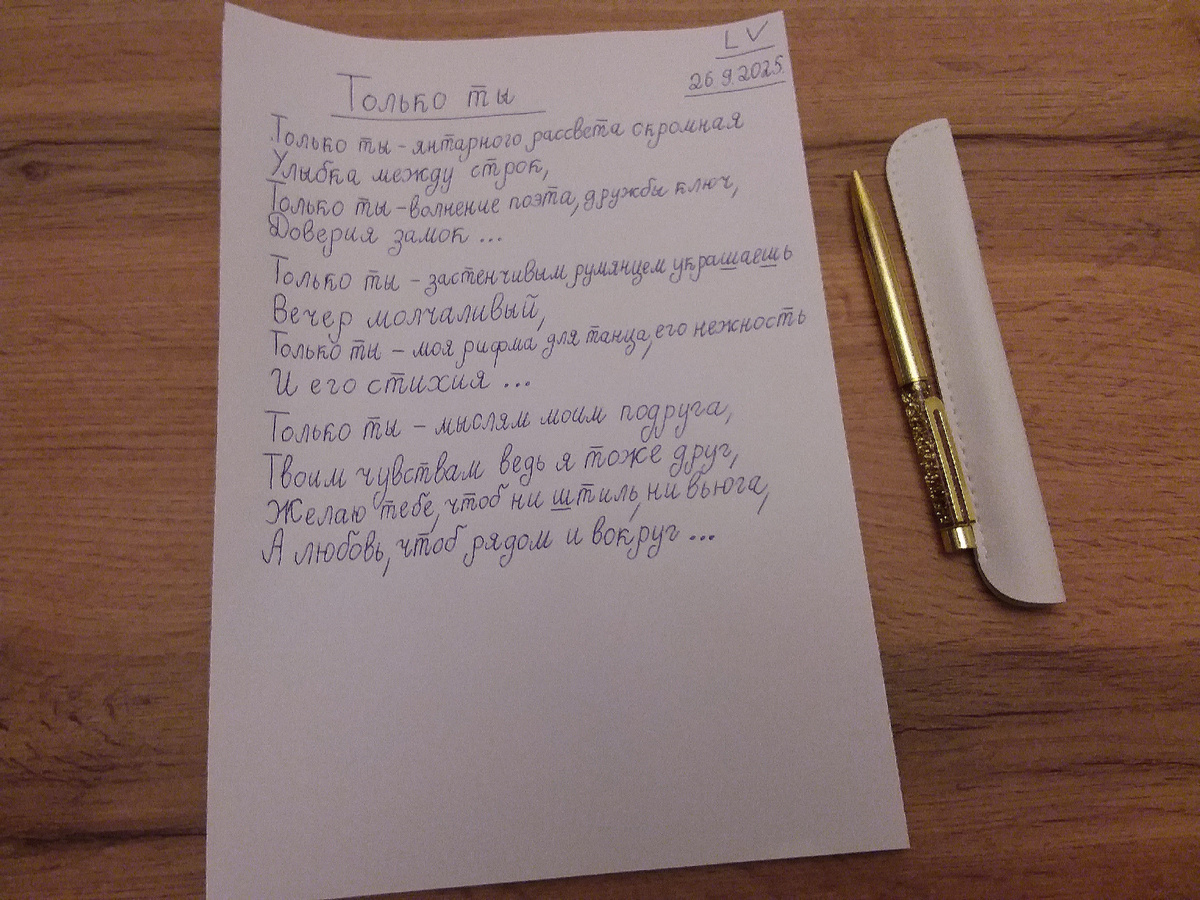 LV
26 9.2025
Только ты
Только ты - янтарного рассвета скромная
Улыбка между строк,
Только ты - волнение поэта, дружбы ключ,
Доверия замок ...
Только ты - застенчивым румянцем украшаешь
Вечер молчаливый,
Только ты - моя рифма для танца, его нежность
И его стихия ...
Только ты - мыслям моим подруга,
Твоим чувствам ведь я тоже друг,
Желаю тебе, чтоб ни штиль, ни вьюга,
А любовь, чтоб рядом и вокруг ...